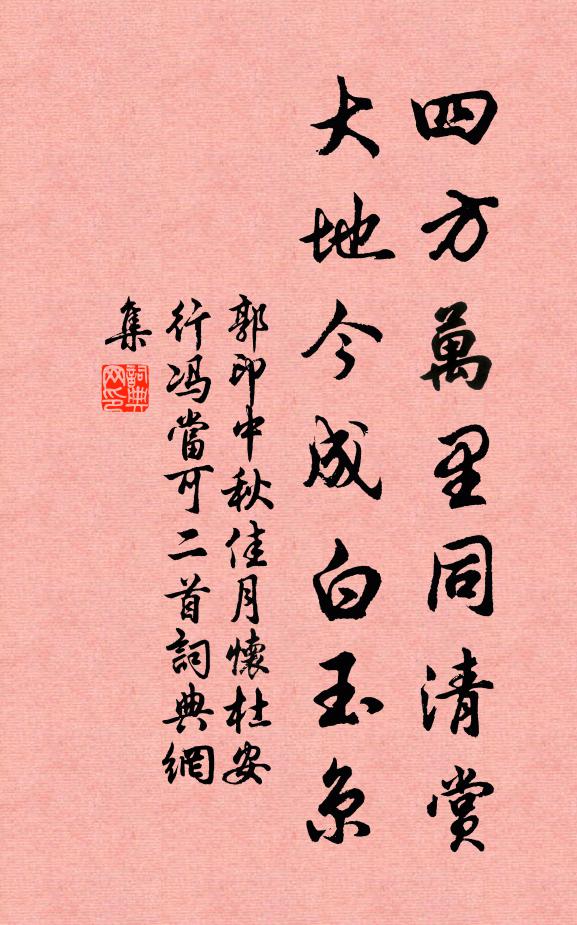 四方萬里同清賞
大地今成白玉京
郭印中秋佳月懷杜安
行馮當可二首詞典網
集
詞典
网印